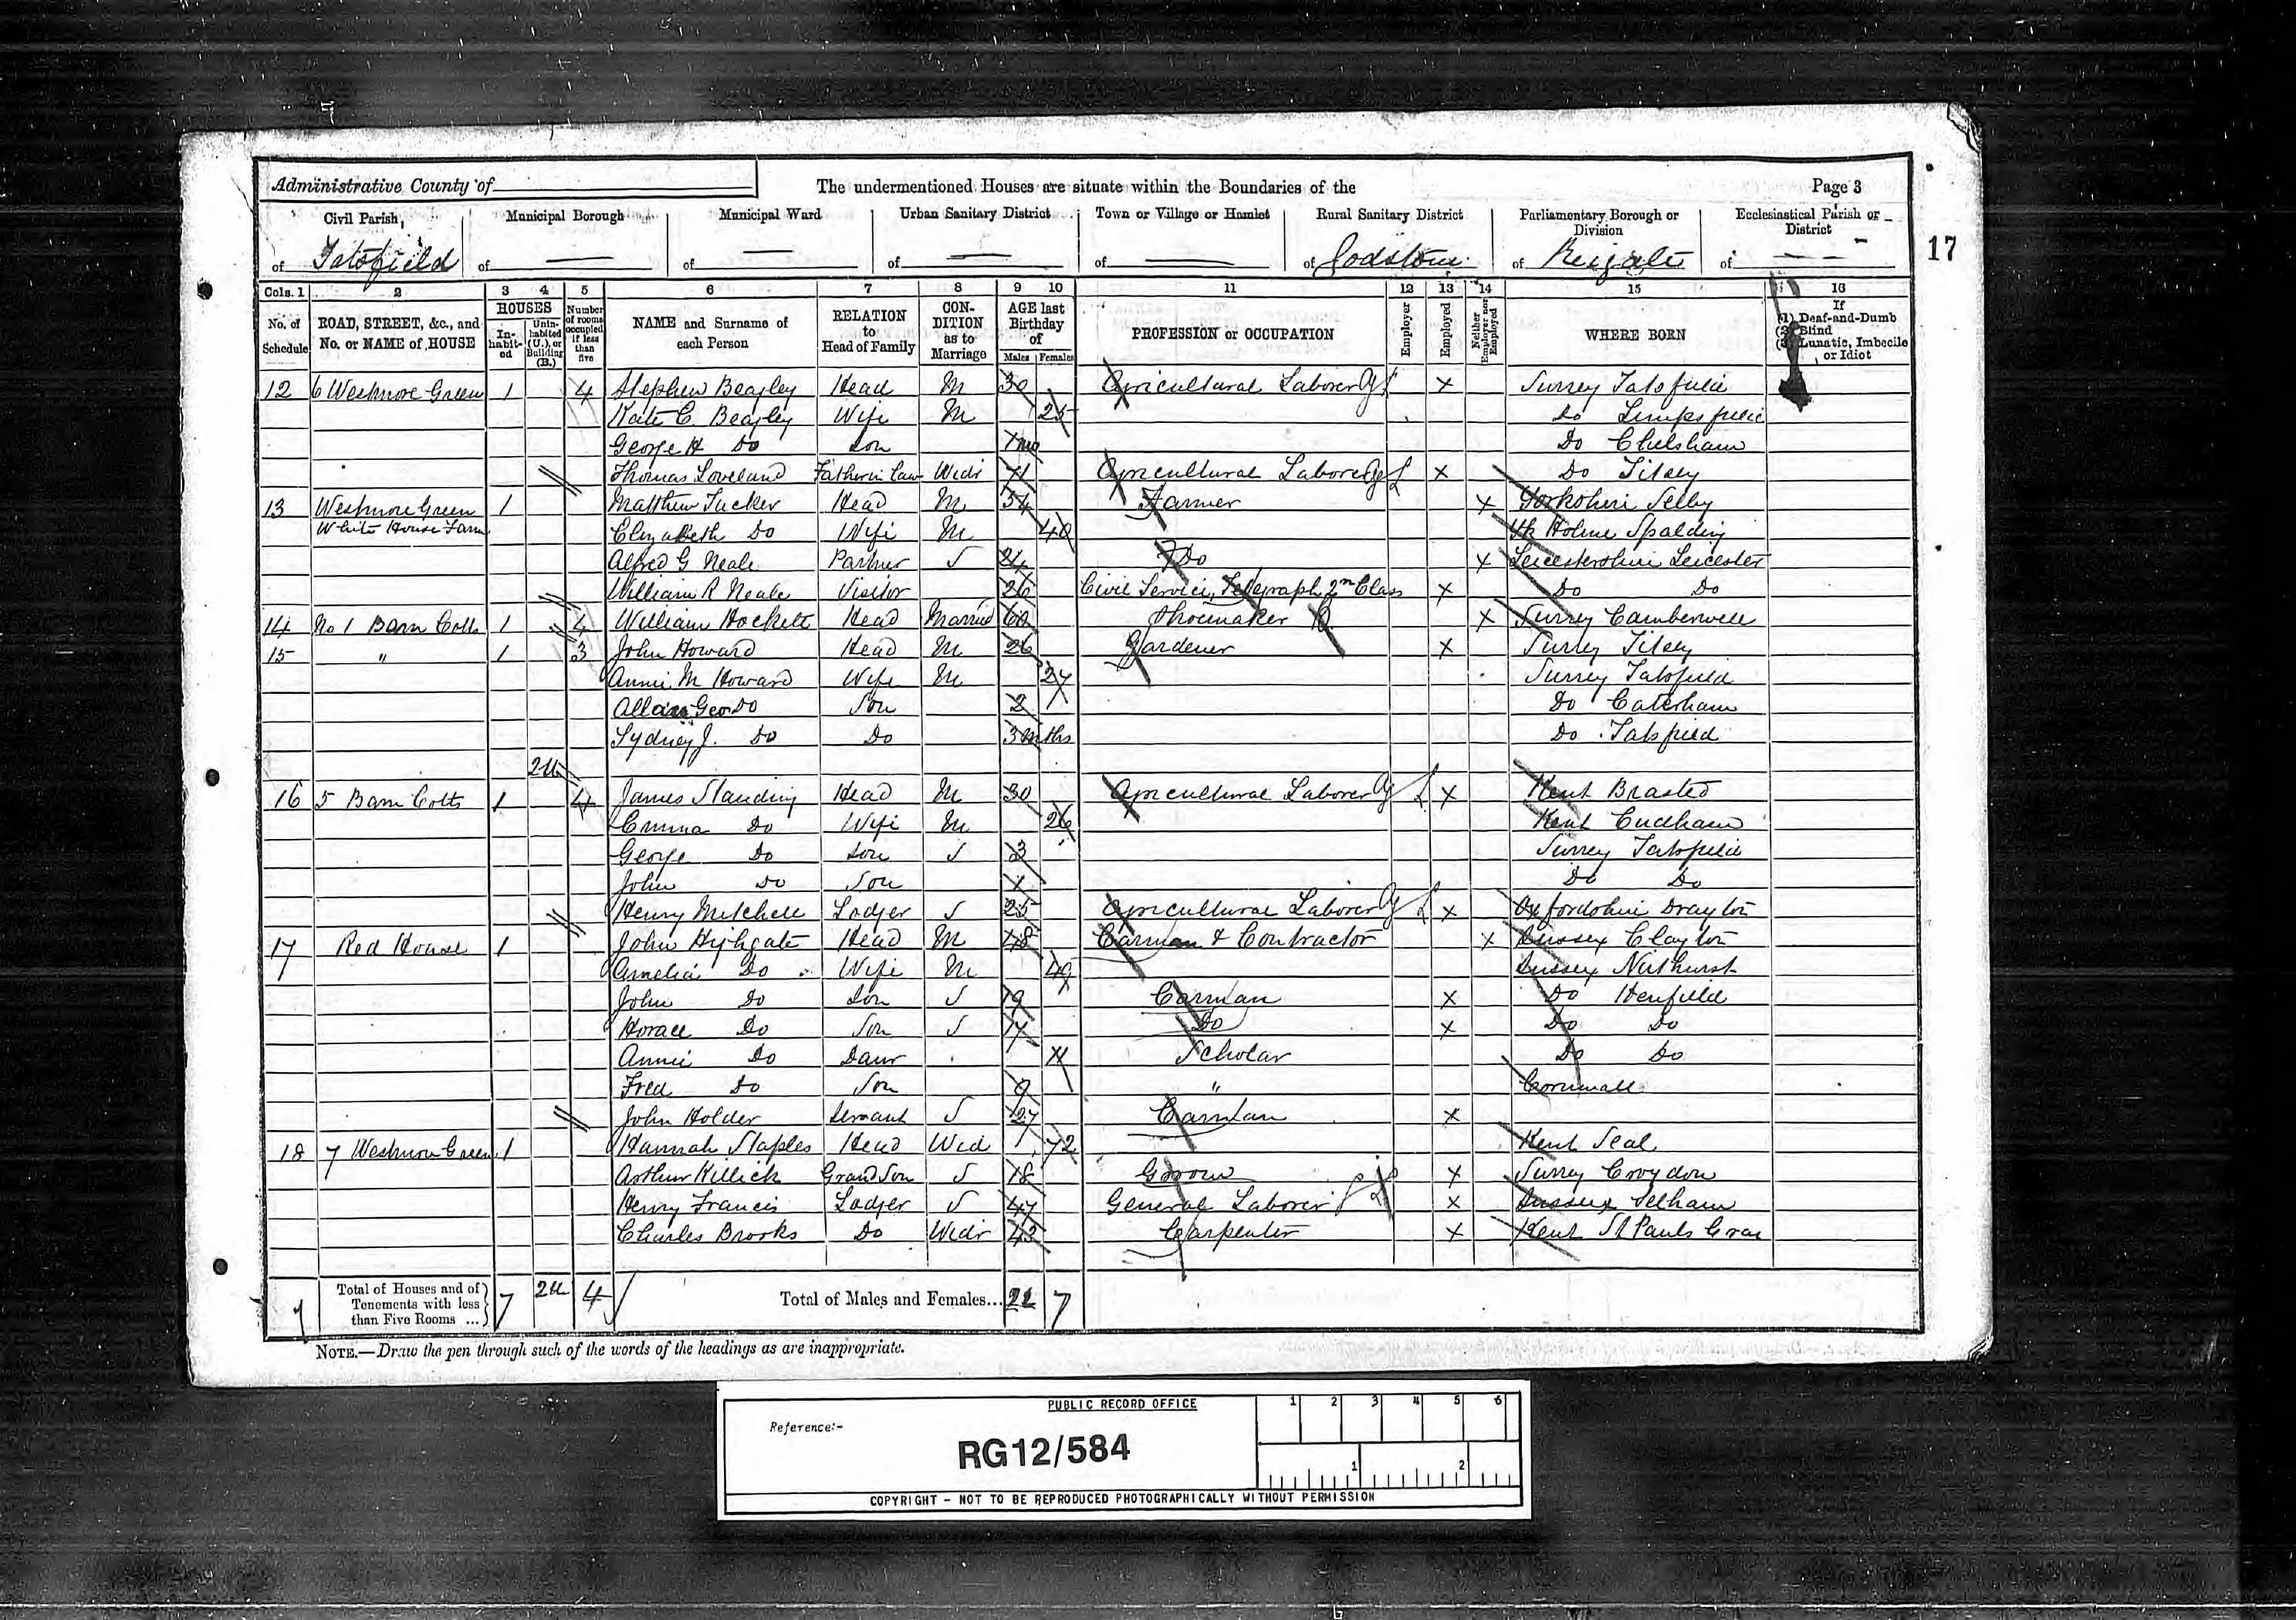 Administrative County of
The undermentioned Houses are situate within the Boundaries of the
Page 3
Civil Parish, of Tatsfield
Municipal Borough of —
Municipal Ward of —
Urban Sanitary District of —
Town or Village or Hamlet of —
Rural Sanitary District of Godstone
Parliamentary Borough or Division of Reigate
Ecclesiastical Parish or District of —
17
Cols. 1 2 3 4 5 6 7 8 9 10 11 12 13 14 15 16
No. of Schedule
ROAD, STREET, &c., and No. or NAME of HOUSE
HOUSES
In-habit-ed
Unin-habited (U.), or Building (B.)
Number of rooms occupied if less than five
NAME and Surname of each Person
RELATION to Head of Family
CON-DITION as to Marriage
AGE last Birthday of
Males Females
PROFESSION or OCCUPATION
Employer
Employed
Neither Employer nor Employed
WHERE BORN
If
(1) Deaf-and-Dumb
(2) Blind
(3) Lunatic, Imbecile or Idiot
12 6 Westmore Green 1 4 Stephen Beagley Head M 30 Agricultural Laborer Ag L X Surrey Tatsfield
Kate C Beagley Wife M 25 Do Limpsfield
George H Do Son 7 mo Do Chelsham
Thomas Loveland Father in Law Widr 71 Agricultural Laborer Ag L X Do Titsey
13 Westmore Green 1 Matthew Tucker Head M 54 Farmer X Yorkshire Selby
White House Farm Elizabeth Do Wife M 40 Yk Holme Spalding
Alfred G Neale Partner S 24 Do X Leicestershire Leicester
William R Neale Visitor 26 Civil Service, Telegraph 2nd Class X Do Do
14 No 1 Barn Cotts 1 4 William Hockett Head Married Shoemaker X Surrey Camberwell
15 " 1 3 John Howard Head M 26 Gardener X Surrey Titsey
Annie M Howard Wife M 27 Surrey Tatsfield
Allan Geo Do Son 2 Do Caterham
Sydney J. Do Do 3 Mths Do Tatsfield
2U
16 5 Barn Cotts 1 4 James Standing Head M 30 Agricultural Laborer Ag L X Kent Brasted
Emma Do Wife M 26 Kent Cudham
George Do Son S 3 Surrey Tatsfield
John Do Son 1 Do Do
Henry Mitchell Lodger S 25 Agricultural Laborer Ag L X Oxfordshire Drayton
17 Red House 1 John Highgate Head M 48 Carman & Contractor X Sussex Clayton
Amelia Do Wife M 49 Sussex Nuthurst
John Do Son S 19 Carman X Do Henfield
Horace Do Son S 17 Do X Do Do
Annie Do Daur 11 Scholar Do Do
Fred Do Son 9 " Cornwall
John Holder Servant S 27 Carman X
18 7 Westmore Green 1 Hannah Staples Head Wid 72 Kent Seal
Arthur Killick Grand Son S 18 Groom X Surrey Croydon
Henry Francis Lodger S 47 General Laborer X Sussex Selham
Charles Brooks Do Widr 43 Carpenter X Kent St Pauls Cray
7 Total of Houses and of Tenements with less than Five Rooms ... 7 2U 4 Total of Males and Females... 22 7
NOTE.—Draw the pen through such of the words of the headings as are inappropriate.
PUBLIC RECORD OFFICE
1 2 3 4 5 6
Reference:-
RG12/584
1 2
COPYRIGHT - NOT TO BE REPRODUCED PHOTOGRAPHICALLY WITHOUT PERMISSION